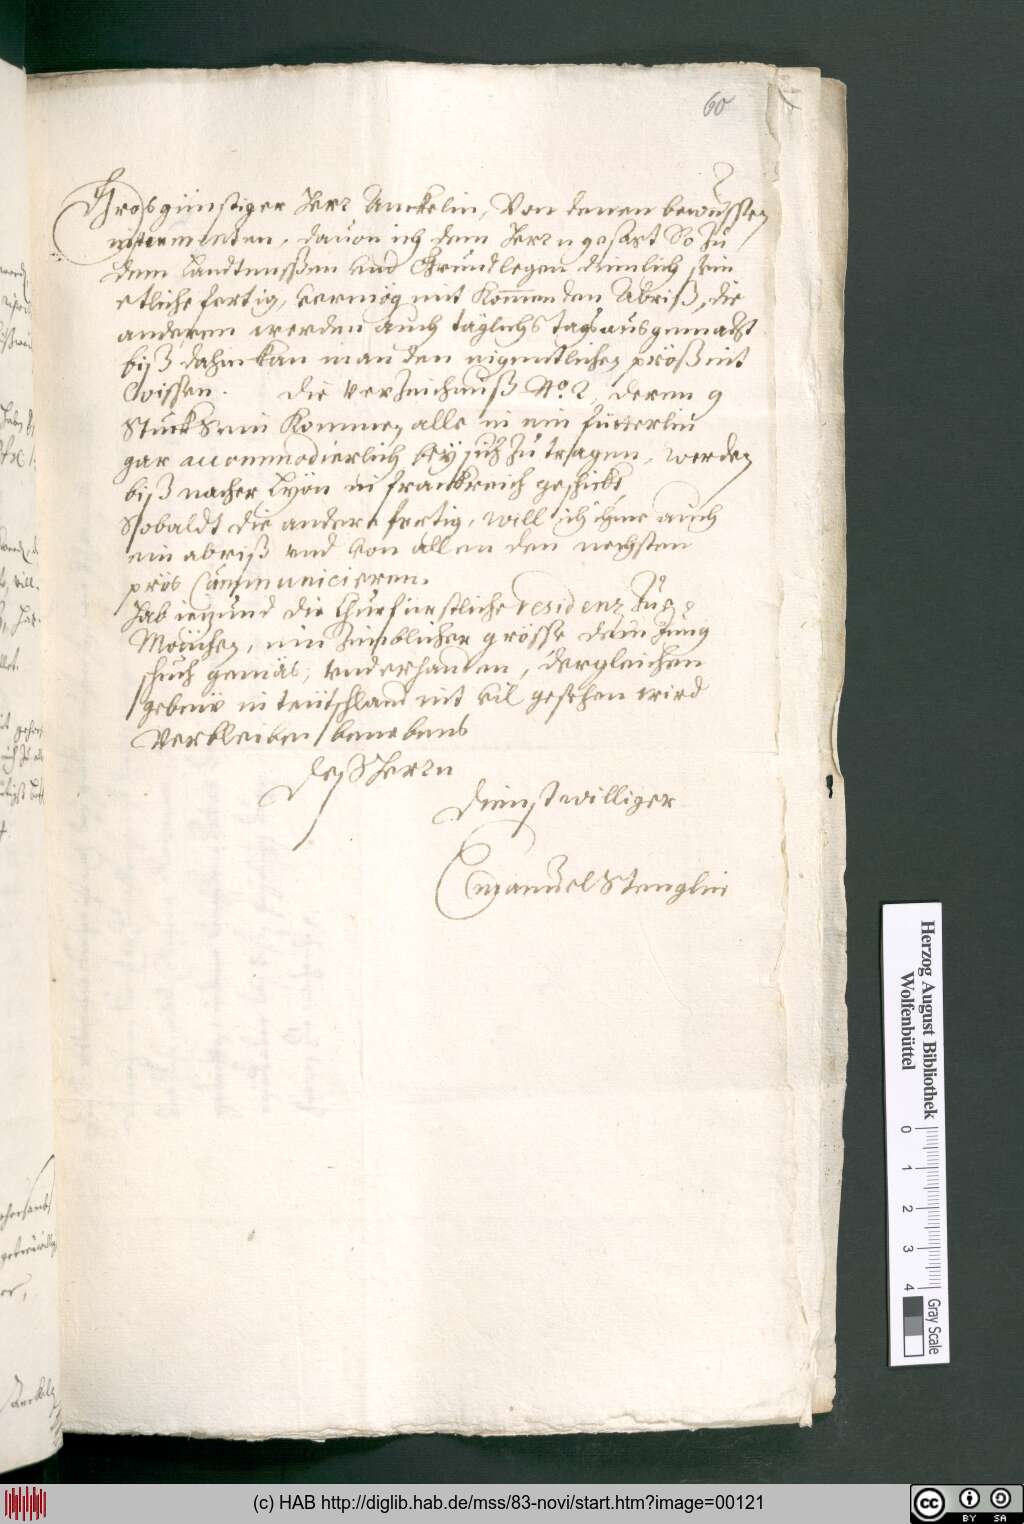 60
Grosgünstiger Herr Anckelin, Von denen bewüssten
instrumenten, dauon ich dem Herrn gesagt So zu
dem Landtmessen vnd Grundlegen dienlich sein
etliche fertig, vermög mit Kommenden Abriß, die
anderen werden auch täglichs tags ausgemacht
biß dahin kan man den eigentlichen preß nit
Wissen. Die Verzeichnuß No. 2, deren 9
Stuckh sein Kommen alle in ein fütterlin
gar accommodierlich bey sich zu tragen, werden
biß nacher Lyon in franckreich geschickt,
Sobaldt die andere fertig, will ich ihme auch
ein abriß vnd von allen den nechsten
preis Communicieren.
Hab iezund die Churfürstliche residenz zue
München, ein zimblicher grösse dem Jung
schuch gemäs, vnderhanden, dergleichen
gebeüw in teütschland nit vil gesehen wird
Verbleiben benebens
Deß Herrn
Dienstwilliger
Emanuel Stenglin
Herzog August Bibliothek
Wolfenbüttel
0 1 2 3 4
Gray Scale
(c) HAB http://diglib.hab.de/mss/83-novi/start.htm?image=00121
CC BY SA